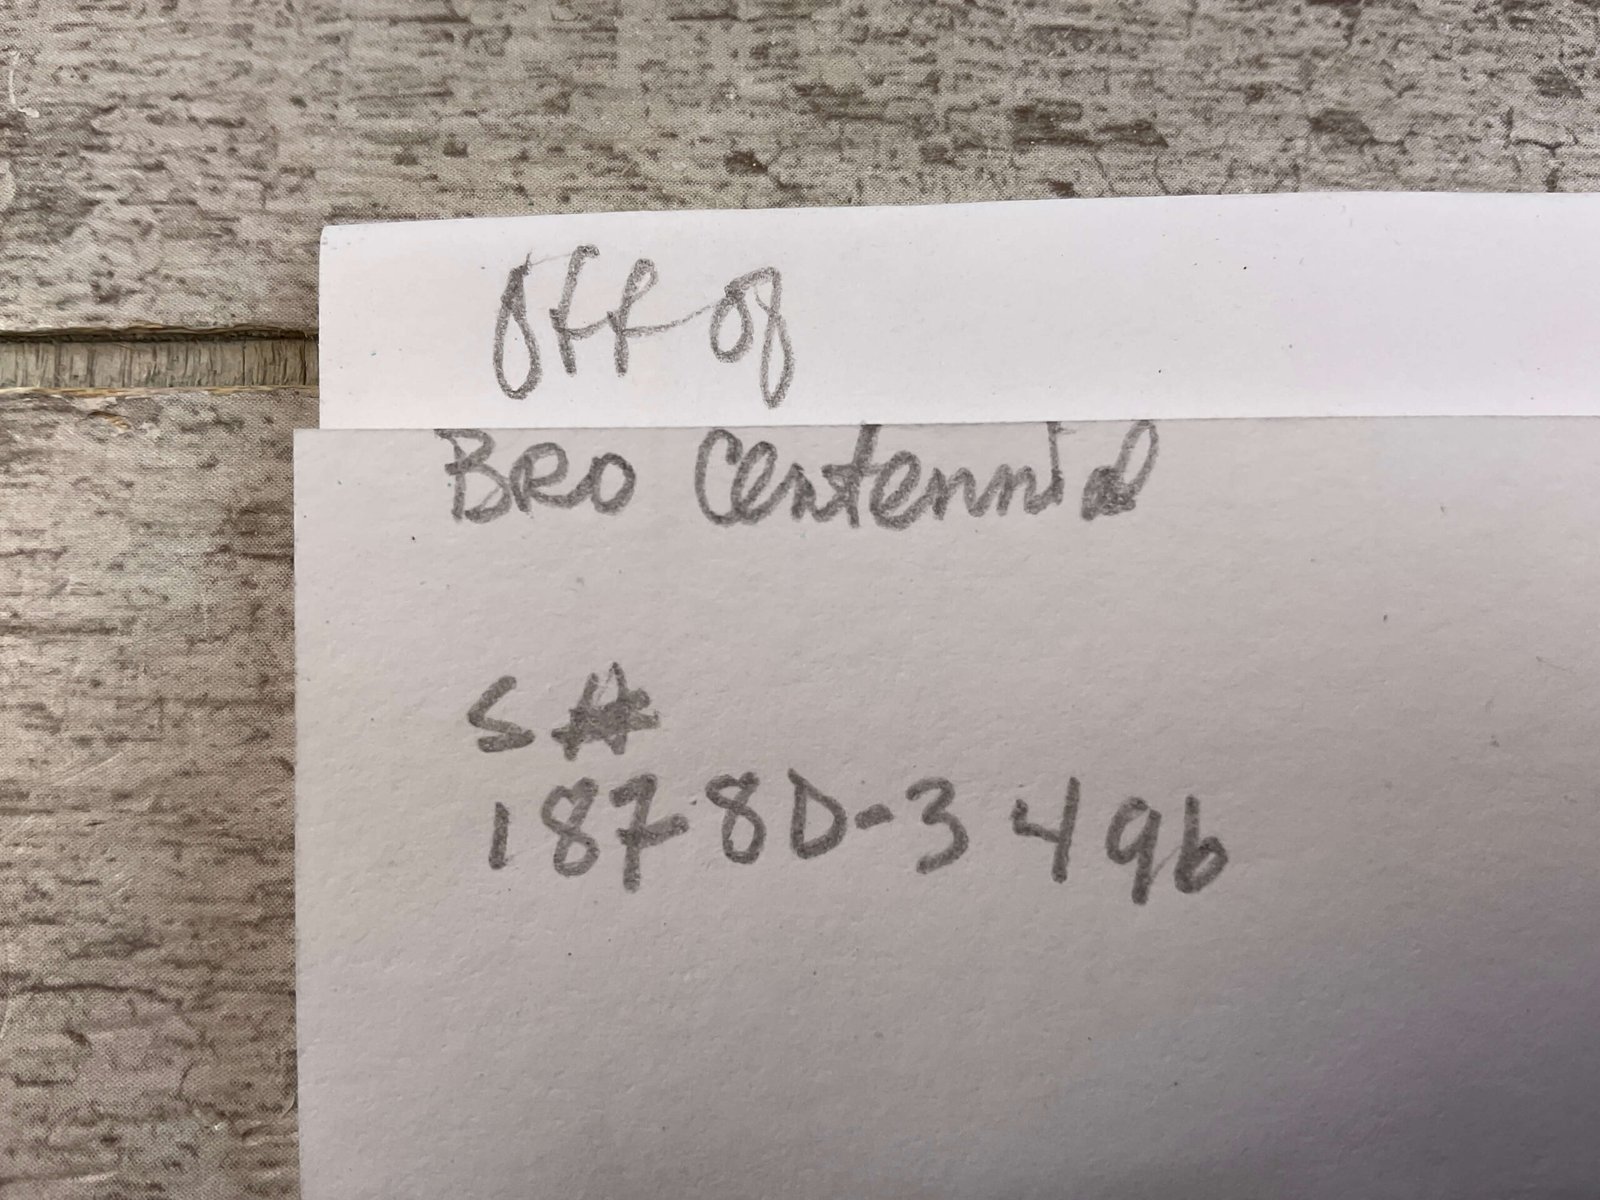 Off of
BRO Centennial
S#
18780-3496